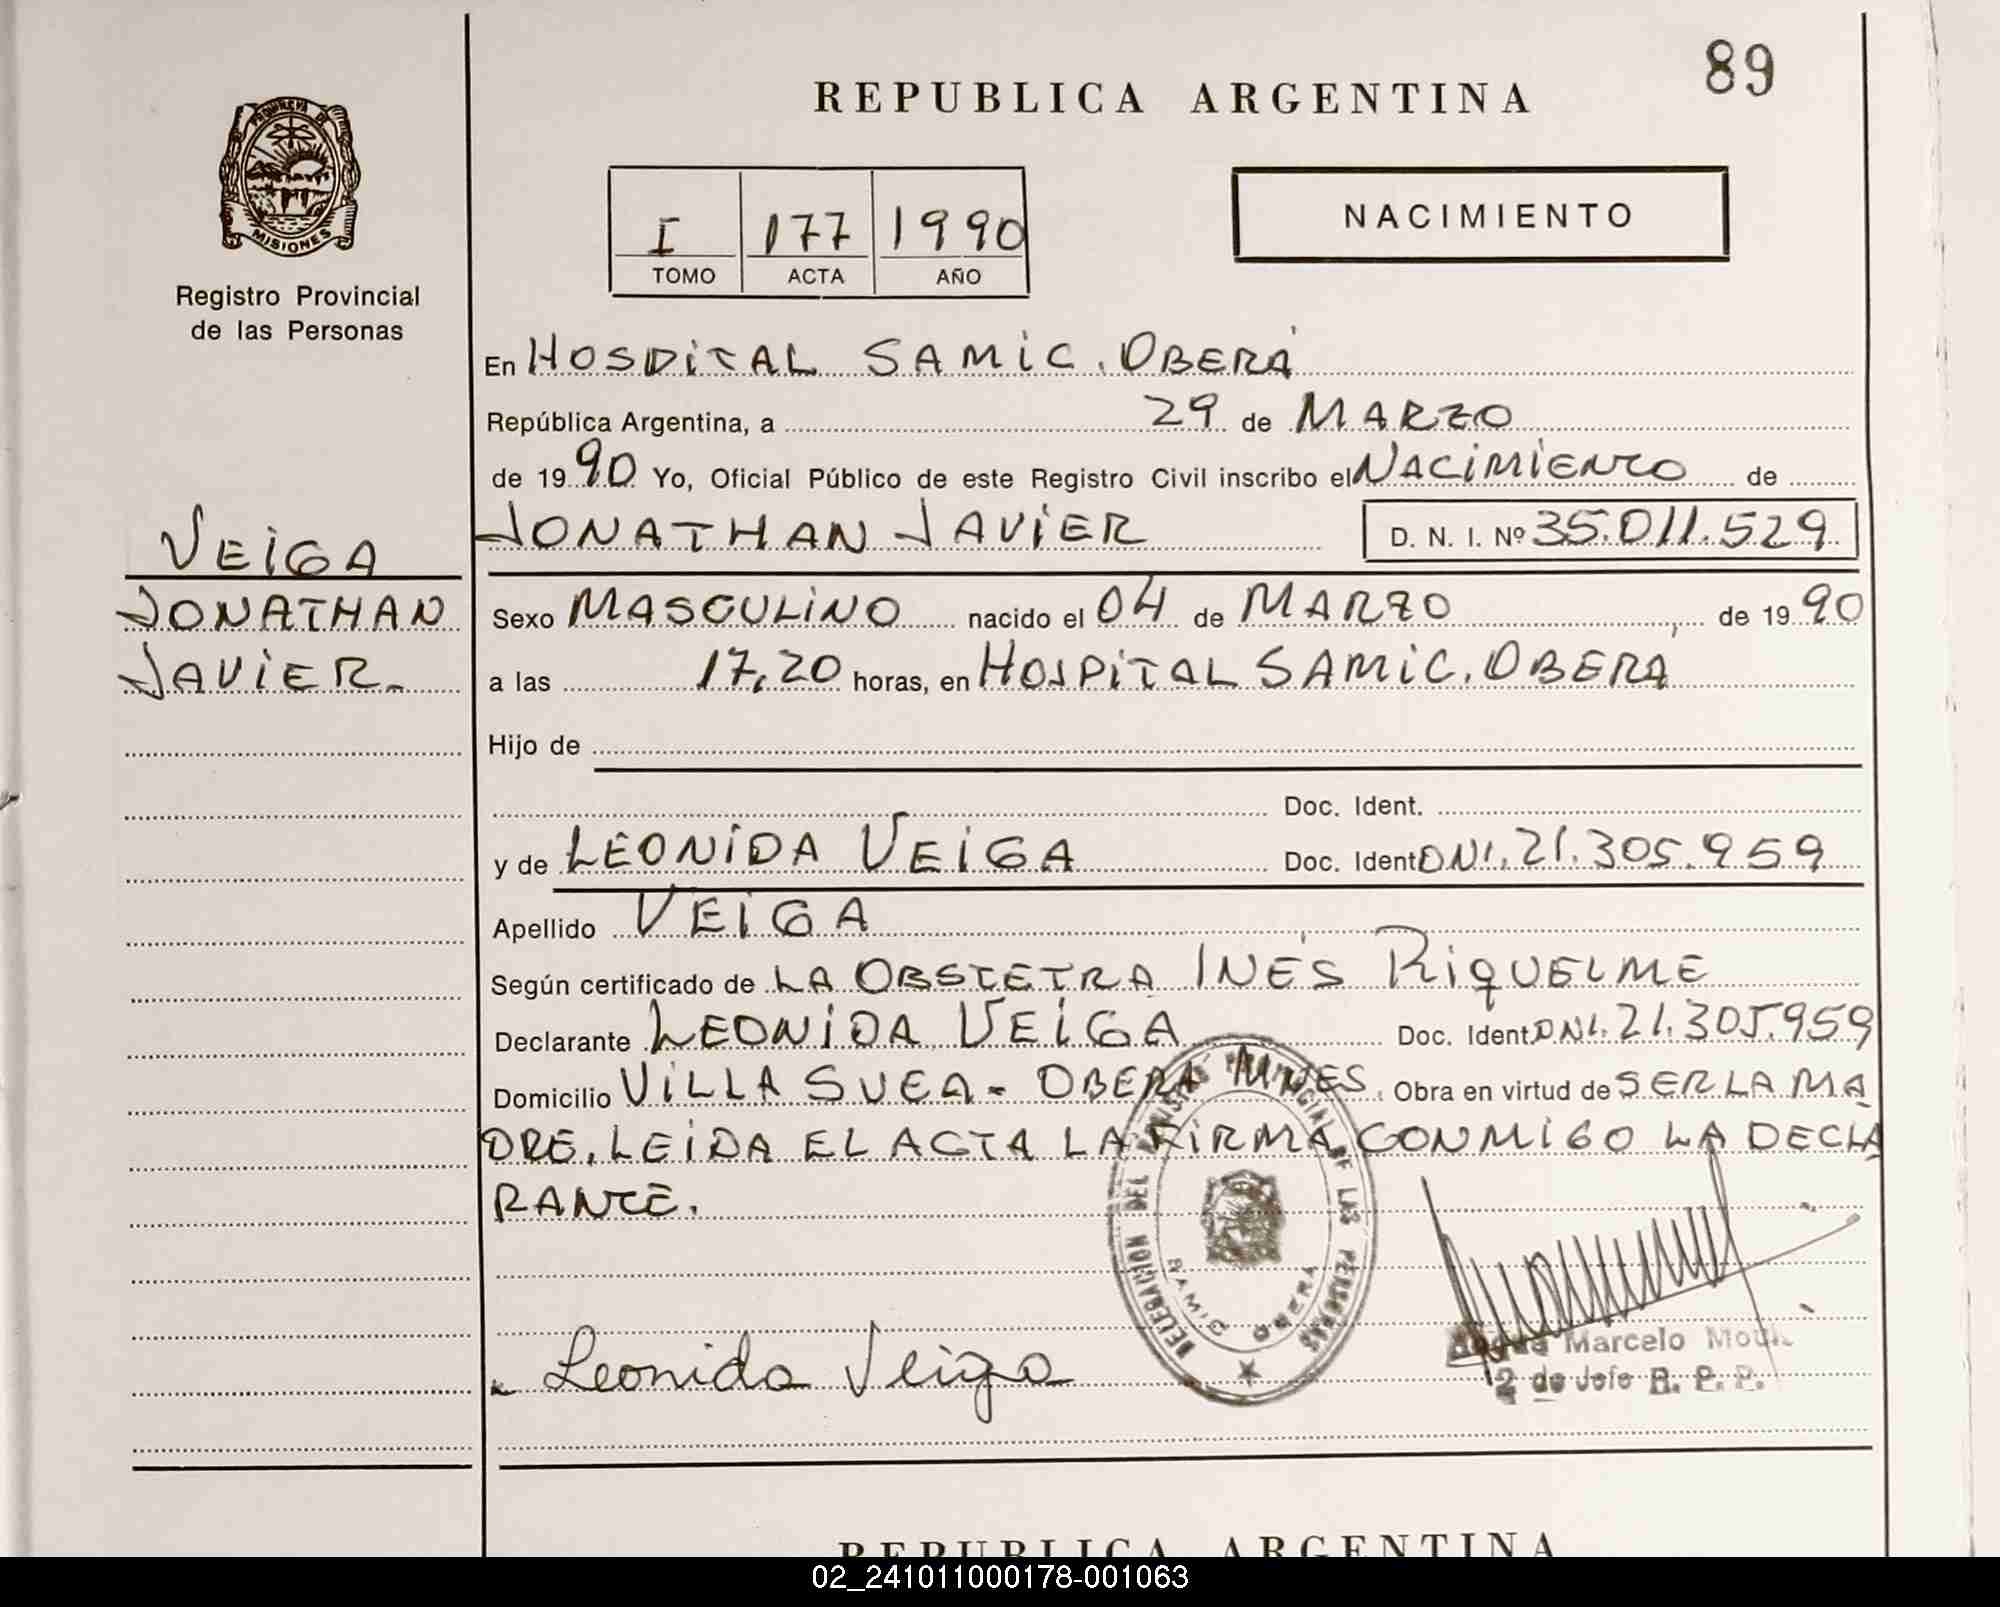 89
REPUBLICA ARGENTINA
PROVINCIA DE
MISIONES
Registro Provincial
de las Personas
I 177 1990
TOMO ACTA AÑO
NACIMIENTO
En HOSPITAL SAMIC. OBERÁ
República Argentina, a 29 de MARZO
de 1990 Yo, Oficial Público de este Registro Civil inscribo el NACIMIENTO de
JONATHAN JAVIER D. N. I. Nº 35.011.529
VEIGA
JONATHAN
JAVIER.
Sexo MASCULINO nacido el 04 de MARZO, de 1990
a las 17,20 horas, en HOSPITAL SAMIC. OBERÁ
Hijo de
Doc. Ident.
y de LEONIDA VEIGA Doc. Ident DNI. 21.305.959
Apellido VEIGA
Según certificado de LA OBSTETRA INÉS RIQUELME
Declarante LEONIDA VEIGA Doc. Ident. DNI. 21.305.959
Domicilio VILLA SVEA - OBERA MNES. Obra en virtud de SER LA MA
DRE. LEIDA EL ACTA LA FIRMA CONMIGO LA DECLA
RANTE.
DELEGACION DEL REGISTRO PROVINCIAL DE LAS PERSONAS
SAMIC OBERA
Leonida Veiga
Marcelo
2 do Jefe R. P. P.
REPUBLICA ARGENTINA
02_241011000178-001063